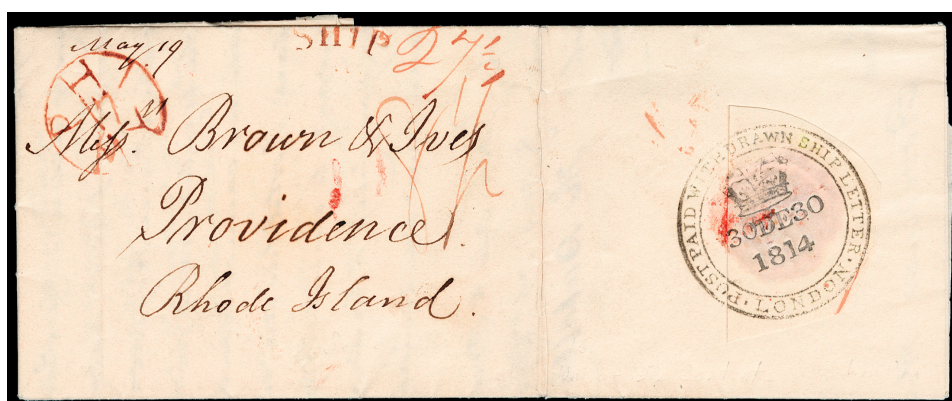 May 19
SHIP 27½
Messrs Brown & Ives
Providence.
Rhode Island.
POST PAID WITHDRAWN SHIP LETTER · LONDON ·
30DE30
1814